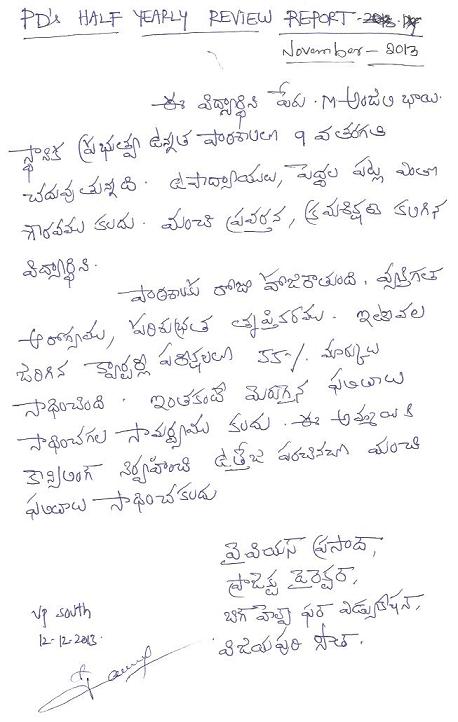 PD's HALF YEARLY REVIEW REPORT -
November - 2013
ఈ విద్యార్థిని పేరు. M అంజలి భాయి.
స్థానిక ప్రభుత్వ ఉన్నత పాఠశాలలో 9 వ తరగతి
చదువుతున్నది. ఉపాధ్యాయులు, పెద్దల పట్ల
గౌరవము కలదు. మంచి ప్రవర్తన, క్రమశిక్షణ కలిగిన
విద్యార్థిని.
పాఠశాలకు రోజు హాజరౌతుంది. వ్యక్తిగత
ఆరోగ్యము, పరిశుభ్రత తృప్తికరము. ఇటీవల
జరిగిన క్వార్టర్లీ పరీక్షలలో 55% మార్కులు
సాధించింది. ఇంతకంటే మెరుగైన ఫలితాలు
సాధించగల సామర్థ్యము కలదు. ఈ అమ్మాయికి
కౌన్సిలింగ్ నిర్వహించి ఉత్తేజ పరచినచో మంచి
ఫలితాలు సాధించకలదు
వై వియస్ ప్రసాద్,
ప్రాజెక్ట్ డైరెక్టర్,
బిగ్ హెల్ప్ ఫర్ ఎడ్యుకేషన్,
విజయపురి సౌత్.
VP South
12-12-2013.